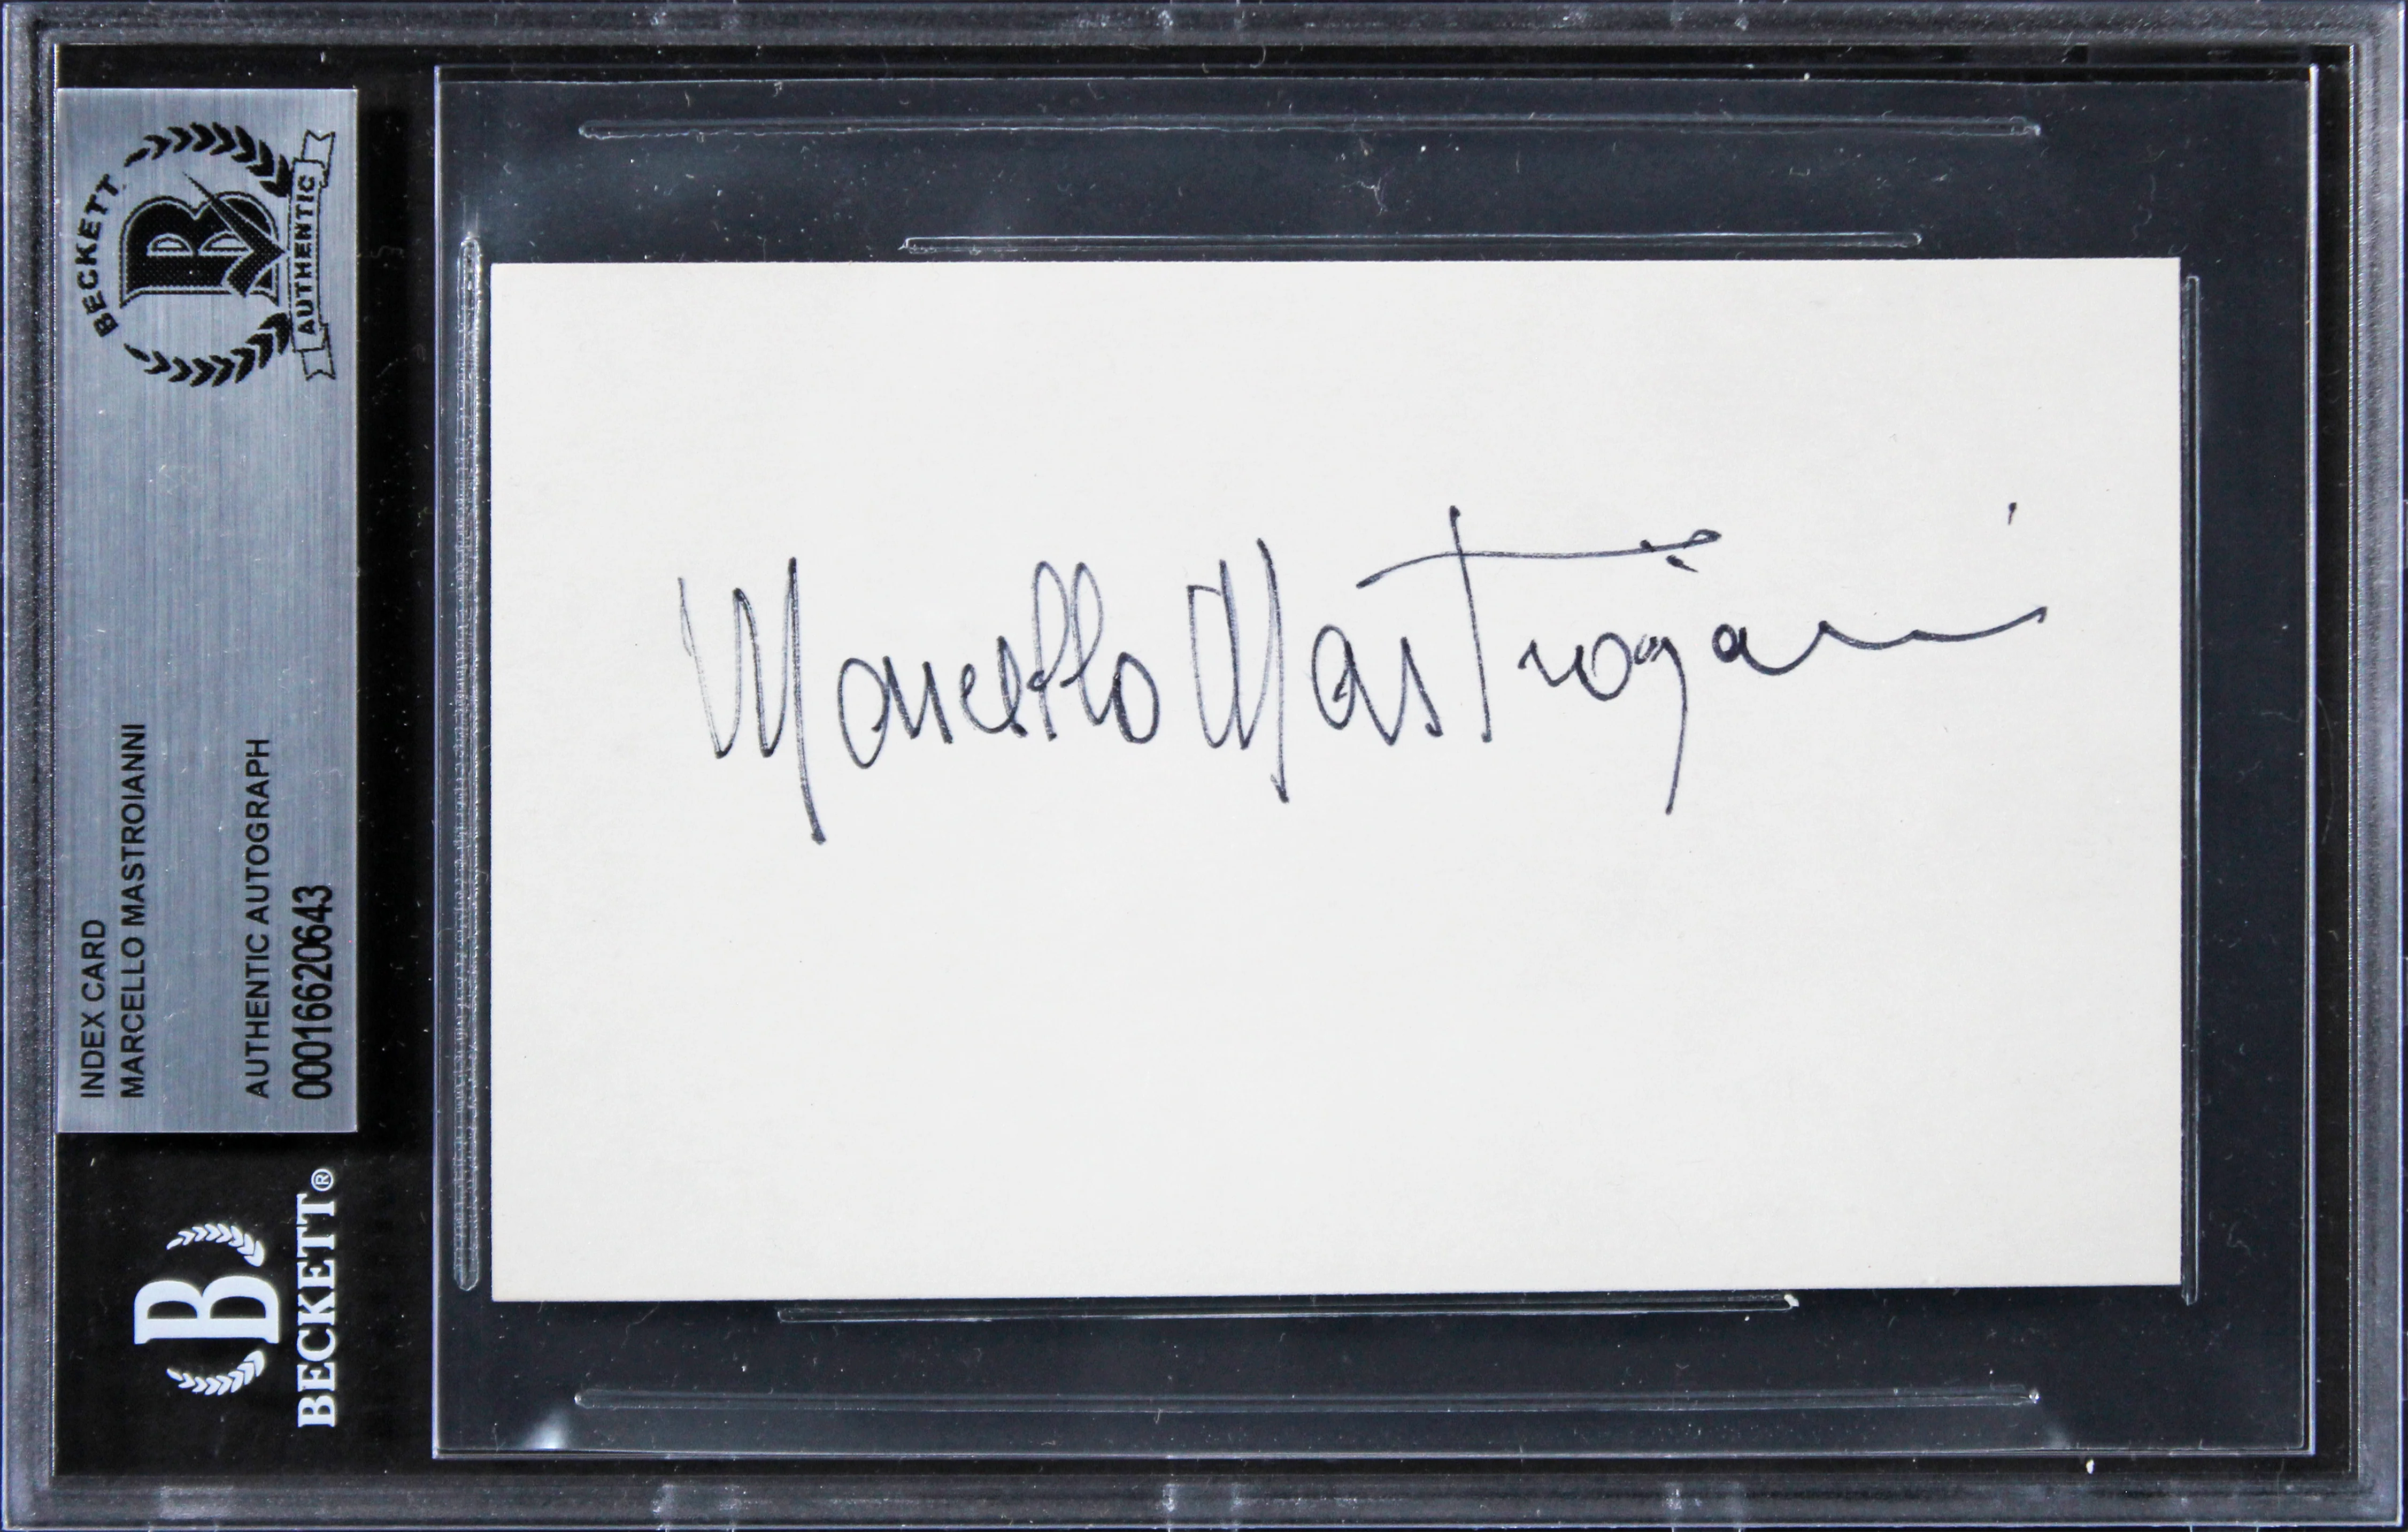 BECKETT
AUTHENTIC
INDEX CARD
MARCELLO MASTROIANNI
AUTHENTIC AUTOGRAPH
00016620643
B
BECKETT®
Marcello Mastroianni